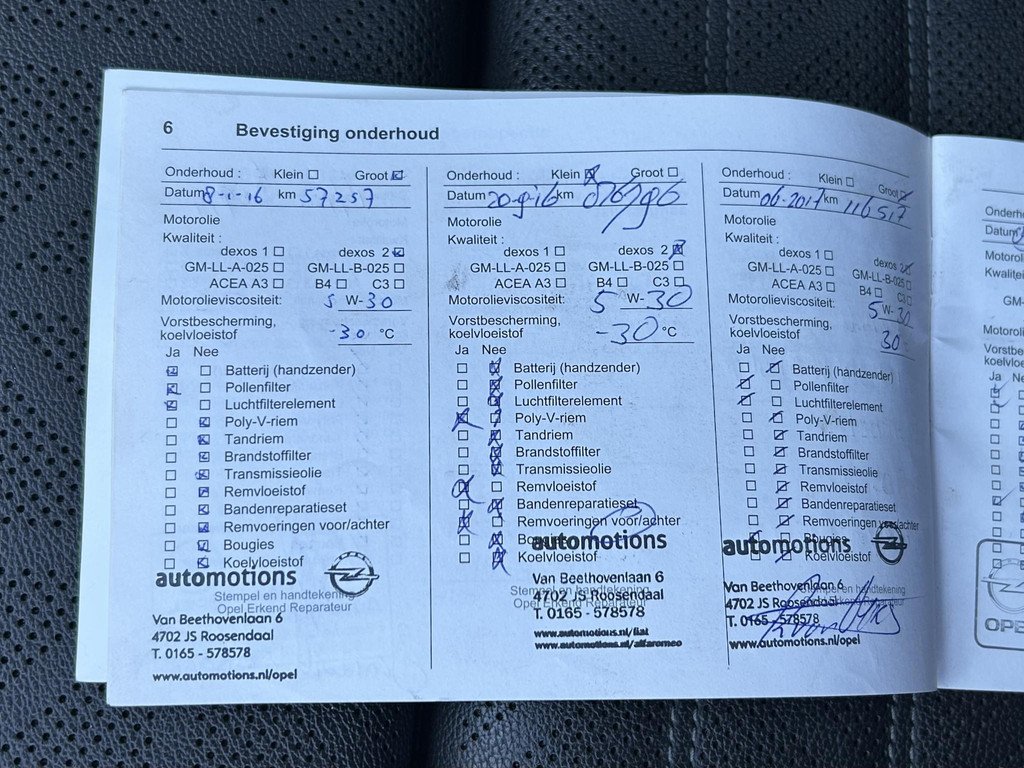 6 Bevestiging onderhoud
Onderhoud : Klein Groot
Datum 8-1-16 km 57257
Motorolie
Kwaliteit :
dexos 1 dexos 2
GM-LL-A-025 GM-LL-B-025
ACEA A3 B4 C3
Motorolieviscositeit: 5 W-30
Vorstbescherming,
koelvloeistof -30 °C
Ja Nee
Batterij (handzender)
Pollenfilter
Luchtfilterelement
Poly-V-riem
Tandriem
Brandstoffilter
Transmissieolie
Remvloeistof
Bandenreparatieset
Remvoeringen voor/achter
Bougies
Koelvloeistof
automotions
Stempel en handtekening
Opel Erkend Reparateur
Van Beethovenlaan 6
4702 JS Roosendaal
T. 0165 - 578578
www.automotions.nl/opel
Onderhoud : Klein Groot
Datum 20-9-16 km
Motorolie
Kwaliteit :
dexos 1 dexos 2
GM-LL-A-025 GM-LL-B-025
ACEA A3 B4 C3
Motorolieviscositeit: 5 W-30
Vorstbescherming,
koelvloeistof -30 °C
Ja Nee
Batterij (handzender)
Pollenfilter
Luchtfilterelement
Poly-V-riem
Tandriem
Brandstoffilter
Transmissieolie
Remvloeistof
Bandenreparatieset
Remvoeringen voor/achter
Bougies
Koelvloeistof
automotions
Stempel en handtekening
Opel Erkend Reparateur
Van Beethovenlaan 6
4702 JS Roosendaal
T. 0165 - 578578
www.automotions.nl/fiat
www.automotions.nl/alfaromeo
Onderhoud : Klein Groot
Datum 06-2017 km 116517
Motorolie
Kwaliteit :
dexos 1 dexos 2
GM-LL-A-025 GM-LL-B-025
ACEA A3 B4 C3
Motorolieviscositeit: 5 W-30
Vorstbescherming,
koelvloeistof 30
Ja Nee
Batterij (handzender)
Pollenfilter
Luchtfilterelement
Poly-V-riem
Tandriem
Brandstoffilter
Transmissieolie
Remvloeistof
Bandenreparatieset
Remvoeringen voor/achter
Bougies
Koelvloeistof
automotions
Stempel en handtekening
Van Beethovenlaan 6
4702 JS Roosendaal
T. 0165 - 578578
www.automotions.nl/opel
Ja